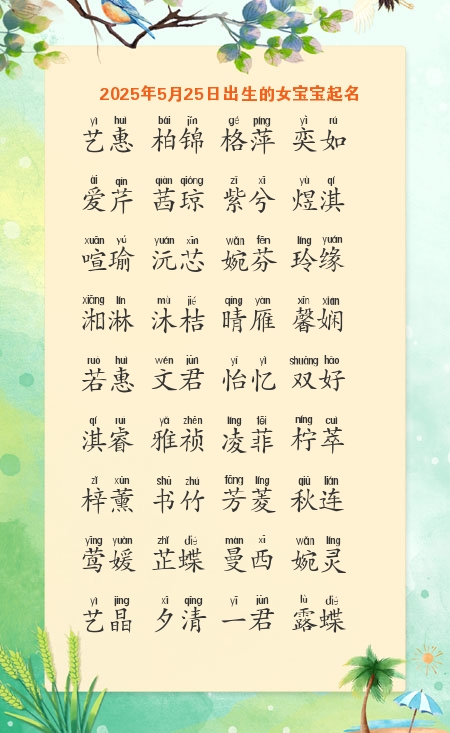 2025年5月25日出生的女宝宝起名
yì huì bǎi jǐn gé píng yì rú
艺惠 柏锦 格萍 奕如
ài qín qiàn qióng zǐ xī yù qí
爱芹 茜琼 紫兮 煜淇
xuān yú yuán xīn wǎn fēn líng yuán
喧瑜 沅芯 婉芬 玲缘
xiāng lín mù jié qíng yàn xīn xián
湘淋 沐桔 晴雁 馨娴
ruò huì wén jūn yí yì shuāng hǎo
若惠 文君 怡忆 双好
qí ruì yǎ zhēn líng fēi níng cuì
淇睿 雅祯 凌菲 柠萃
zǐ xūn shū zhú fāng líng qiū lián
梓薰 书竹 芳菱 秋连
yīng yuàn zhǐ dié màn xī wǎn líng
莺媛 芷蝶 曼西 婉灵
yì jīng xī qīng yī jūn lù dié
艺晶 夕清 一君 露蝶